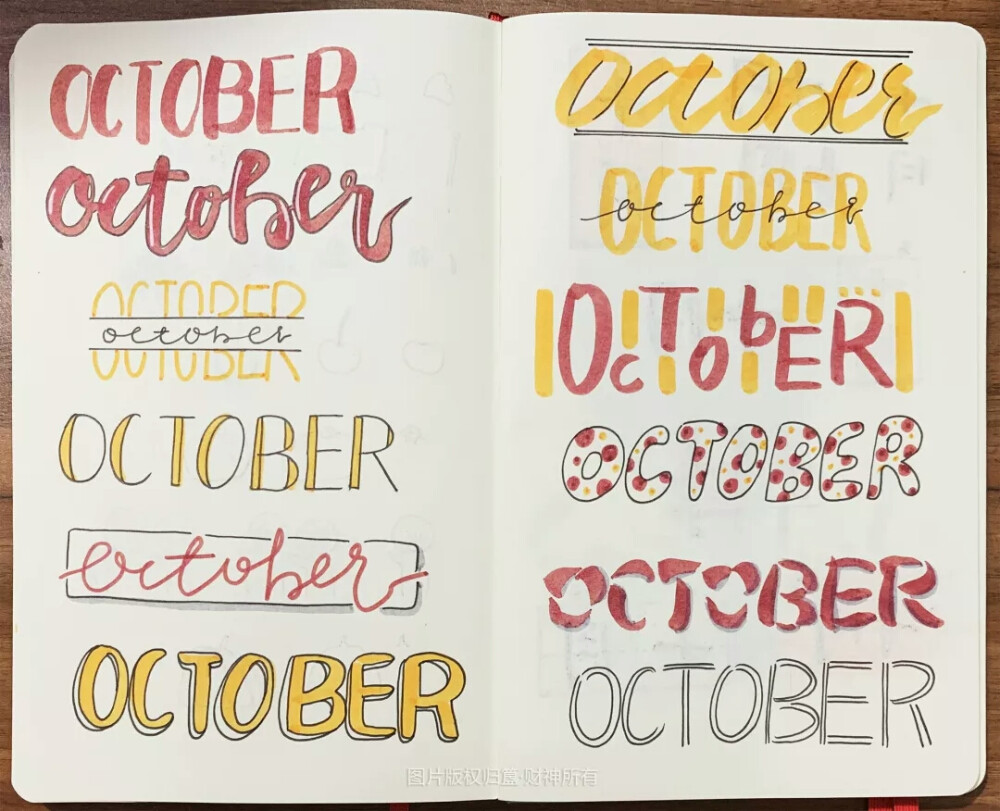 OCTOBER
october
OCTOBER
october
OCTOBER
october
OCTOBER
october
OCTOBER
october
OcTobER
OCTOBER
OCTOBER
OCTOBER
图片版权归篁·财神所有